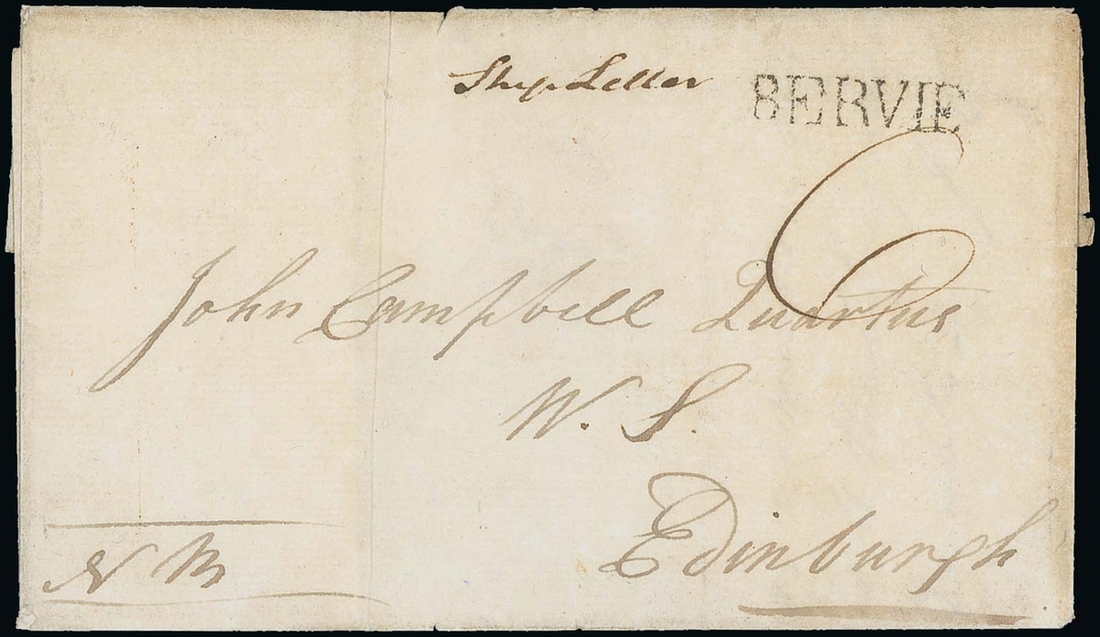 Ship Letter
BERVIE
6
John Campbell Quartus
W. S.
Edinburgh
N B